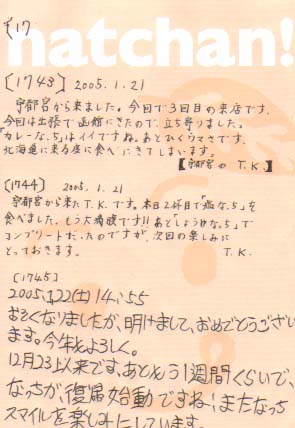 hatchan!
[1743] 2005.1.21
宇都宮から来ました。今回で3回目の来店です。
今回は出張で函館にきたので、立ち寄りました。
「カレーなっち」はイイですね。あとひくウマさです。
北海道に来る度に食べにきてしまいます。
【宇都宮の T.K.】
[1744] 2005.1.21
宇都宮から来たT.K.です。本日2杯目で「塩なっち」を
食べました。もう大満腹です!!あと「しょうゆなっち」で
コンプリートだったのですが、次回の楽しみに
とっておきます。 T.K.
[1745]
2005.1.22(土)14:55
おそくなりましたが、明けまして、おめでとうござい
ます。今年もよろしく。
12月23以来です、あともう1週間くらいで、
なっちが、復帰始動ですね!またなっち
スマイルを楽しみにしています。